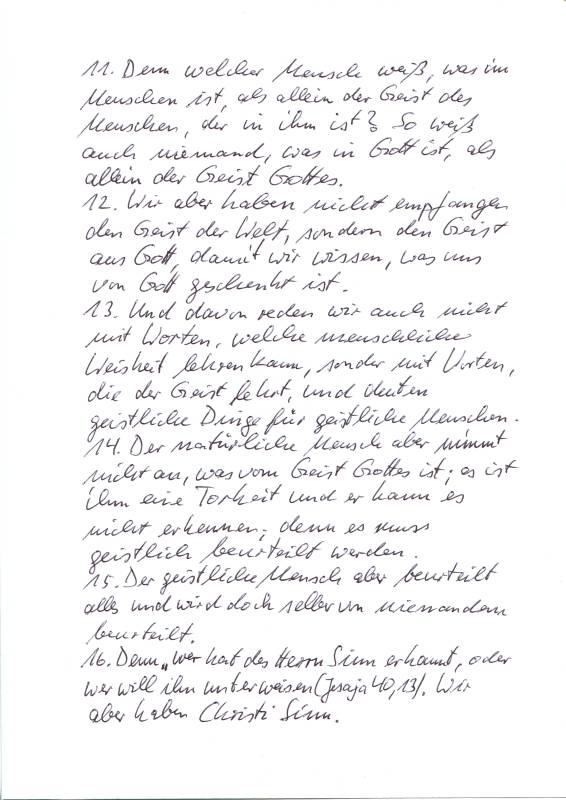 11. Denn welcher Mensch weiß, was im
Menschen ist, als allein der Geist des
Menschen, der in ihm ist? So weiß
auch niemand, was in Gott ist, als
allein der Geist Gottes.
12. Wir aber haben nicht empfangen
den Geist der Welt, sondern den Geist
aus Gott, damit wir wissen, was uns
von Gott geschenkt ist.
13. Und davon reden wir auch nicht
mit Worten, welche menschliche
Weisheit lehren kann, sonder mit Worten,
die der Geist lehrt, und deuten
geistliche Dinge für geistliche Menschen.
14. Der natürliche Mensch aber nimmt
nicht an, was vom Geist Gottes ist; es ist
ihm eine Torheit und er kann es
nicht erkennen; denn es muss
geistlich beurteilt werden.
15. Der geistliche Mensch aber beurteilt
alles und wird doch selber von niemandem
beurteilt.
16. Denn „wer hat des Herrn Sinn erkannt, oder
wer will ihn unterweisen (Jesaja 40,13). Wir
aber haben Christi Sinn.